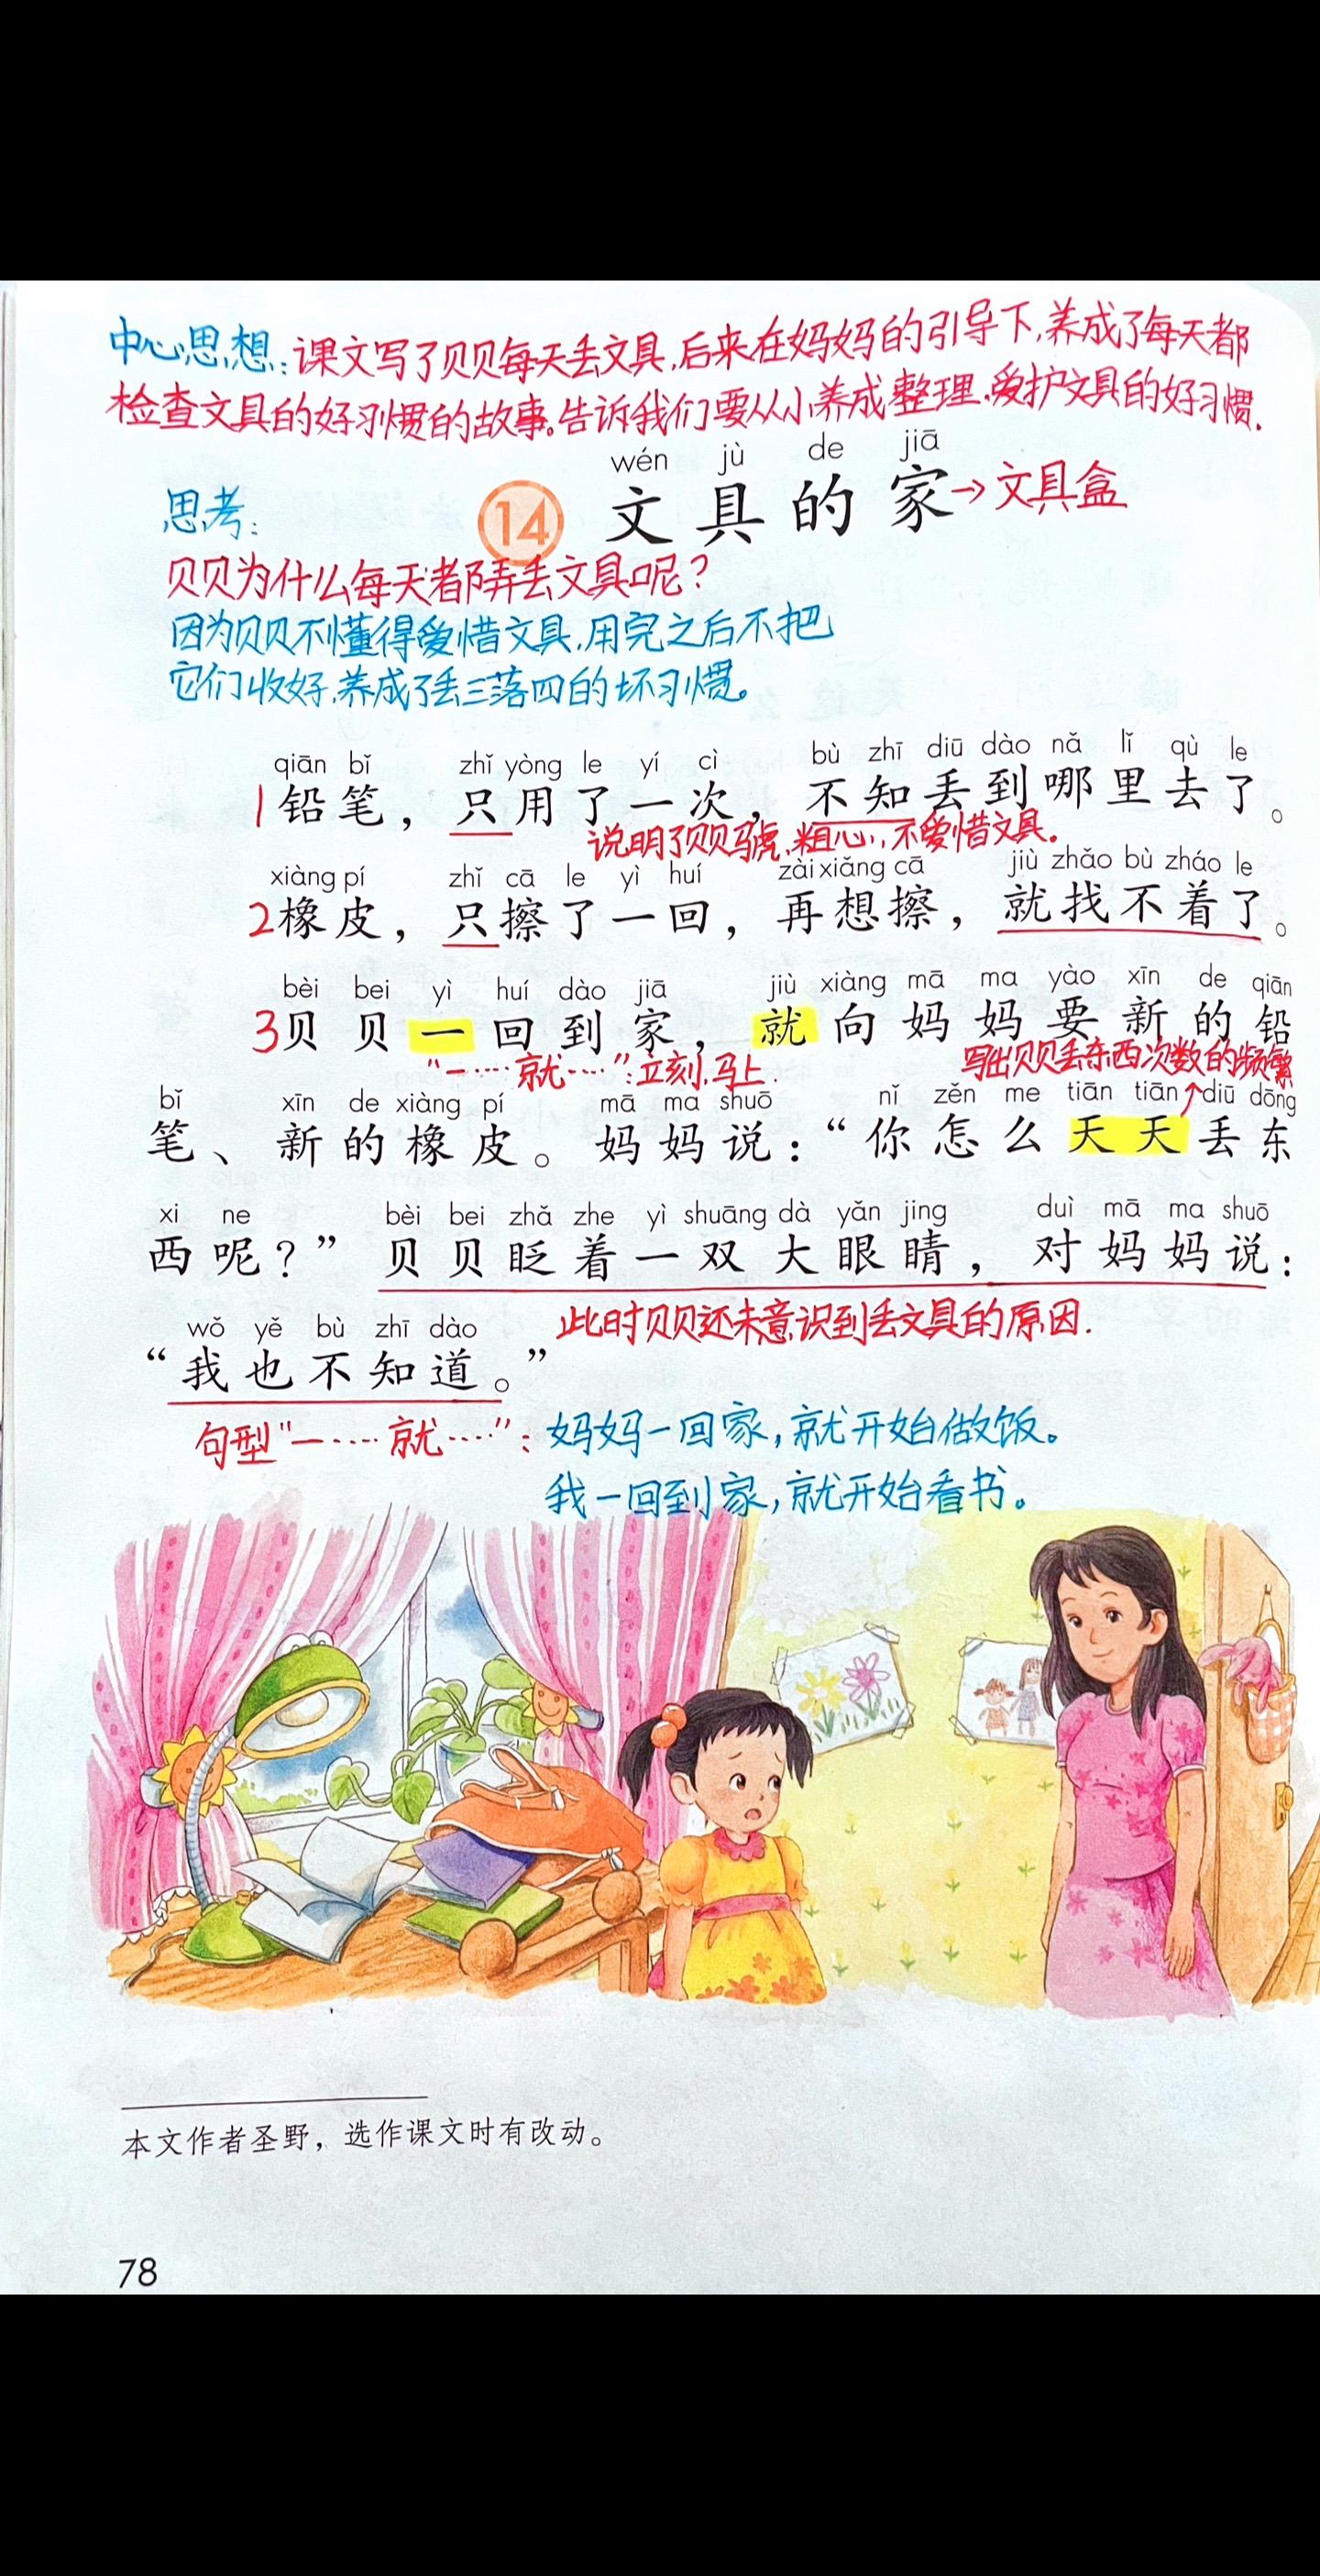 中心思想:课文写了贝贝每天丢文具,后来在妈妈的引导下,养成了每天都
检查文具的好习惯的故事。告诉我们要从小养成整理、爱护文具的好习惯.
wén jù de jiā
14 文具的家→文具盒
思考:
贝贝为什么每天都弄丢文具呢?
因为贝贝不懂得爱惜文具,用完之后不把
它们收好,养成了丢三落四的坏习惯。
qiān bǐ zhǐ yòng le yí cì bù zhī diū dào nǎ lǐ qù le
1铅笔,只用了一次,不知丢到哪里去了。
说明了贝贝马虎、粗心、不爱惜文具。
xiàng pí zhǐ cā le yì huí zài xiǎng cā jiù zhǎo bù zháo le
2橡皮,只擦了一回,再想擦,就找不着了。
bèi bei yì huí dào jiā jiù xiàng mā ma yào xīn de qiān
3贝贝一回到家,就向妈妈要新的铅
“一····就····”:立刻、马上.
写出贝贝丢东西次数的频繁
bǐ xīn de xiàng pí mā ma shuō nǐ zěn me tiān tiān diū dōng
笔、新的橡皮。妈妈说:“你怎么天天丢东
xi ne bèi bei zhǎ zhe yì shuāng dà yǎn jing duì mā ma shuō
西呢?”贝贝眨着一双大眼睛,对妈妈说:
此时贝贝还未意识到丢文具的原因.
wǒ yě bù zhī dào
“我也不知道。”
句型“一····就····”:妈妈一回家,就开始做饭。
我一回到家,就开始看书。
本文作者圣野,选作课文时有改动。
78